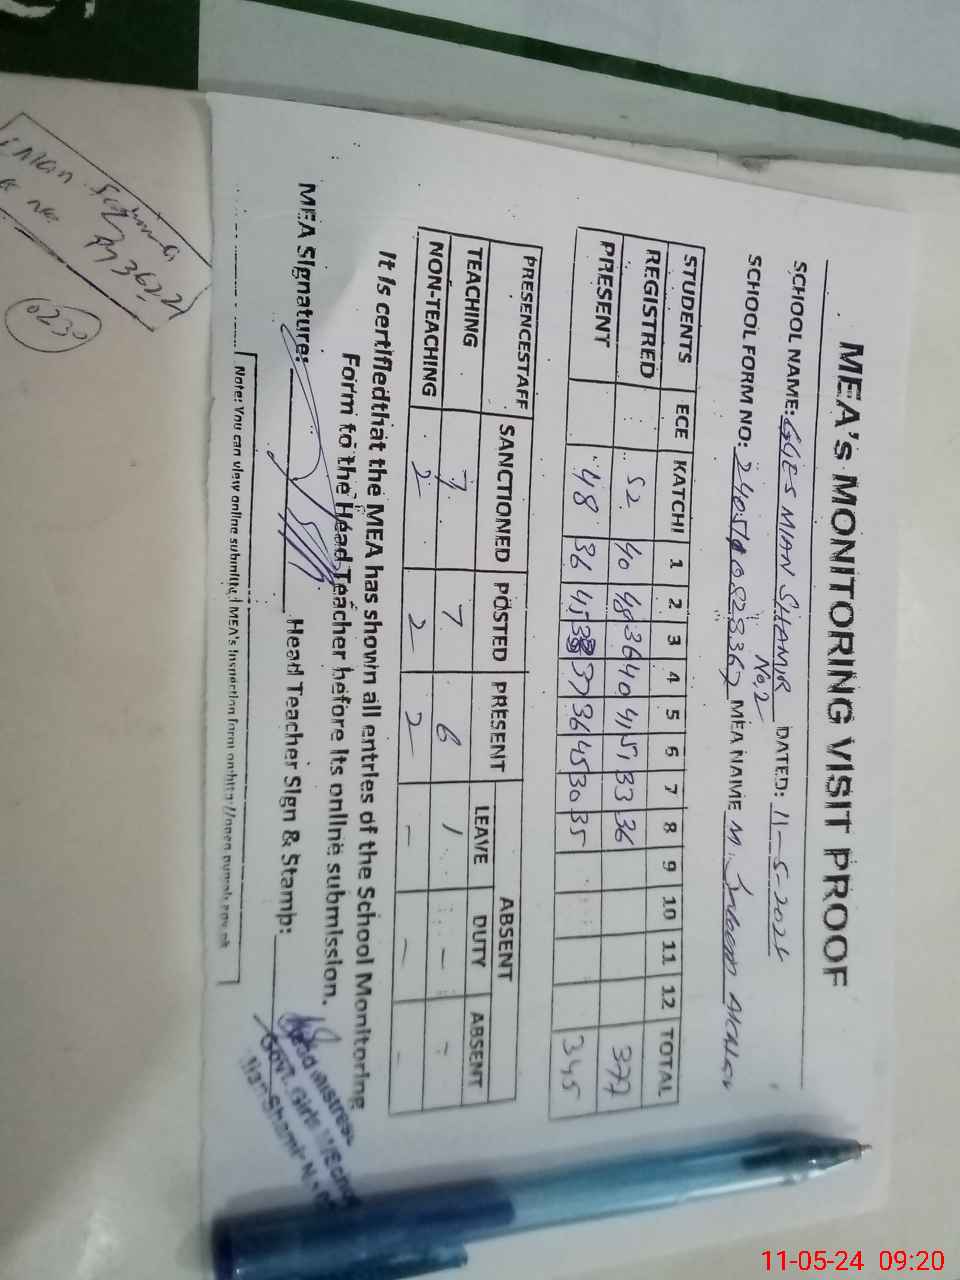 MEA's MONITORING VISIT PROOF
SCHOOL NAME: GGES MIAN SHAMIR No,2 DATED: 11-5-2024
SCHOOL FORM NO: MEA NAME M.
STUDENTS ECE KATCHI 1 2 3 4 5 6 7 8 9 10 11 12 TOTAL
REGISTRED 52 40 48 36 40 41 51 33 36 377
PRESENT 48 36 45 33 37 36 45 30 35 345
PRESENCESTAFF SANCTIONED POSTED PRESENT ABSENT
LEAVE DUTY ABSENT
TEACHING 7 7 6 1 - -
NON-TEACHING 2 2 2 - - -
It is certifiedthat the MEA has shown all entries of the School Monitoring
Form to the Head Teacher before its online submission.
MEA Signature: Head Teacher Sign & Stamp:
Head Mistress
Govt. Girls
Mian Shamir
Note: You can view online submitted MEA's inspection form on:http://open.punjab.gov.pk
0230
11-05-24 09:20